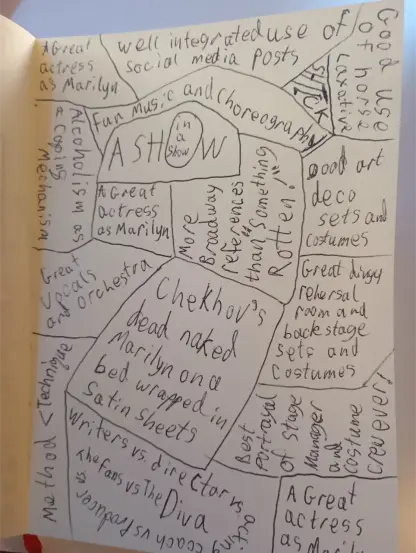 A Great
actress
as Marilyn
well integrated use of
social media posts
Good use
of horse
laxative
SHTICK
Fun Music and choreography
Alcoholism as
a coping
Mechanism
A SHOW
in
a
Show
A Great
actress
as Marilyn
More
Broadway
references
than "Something
Rotten!"
Good art
deco
sets and
costumes
Great
vocals
and orchestra
Chekhov's
dead naked
Marilyn on a
bed wrapped in
Satin sheets
Great dingy
rehersal
room and
backstage
sets and
Costumes
Method < Technique
Best
portrayal
of stage
Manager
and
costume
crew ever!
Writers vs. director vs
The Fans vs The Diva
coach vs producer vs
A Great
actress
as Marilyn